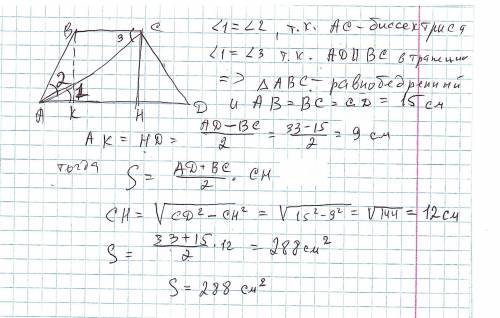 B C
3
2 1
A K H D
∠1=∠2, т.к. AC-биссектриса
∠1=∠3 т.к. AD∥BC в трапеции
=> △ABC- равнобедренный
и AB=BC=CD=15 см
AK = HD = (AD-BC)/2 = (33-15)/2 = 9 см
тогда S = (AD+BC)/2 · CH
CH = √(CD²-CH²) = √(15²-9²) = √144 = 12 см
S = (33+15)/2 · 12 = 288 см²
S = 288 см²